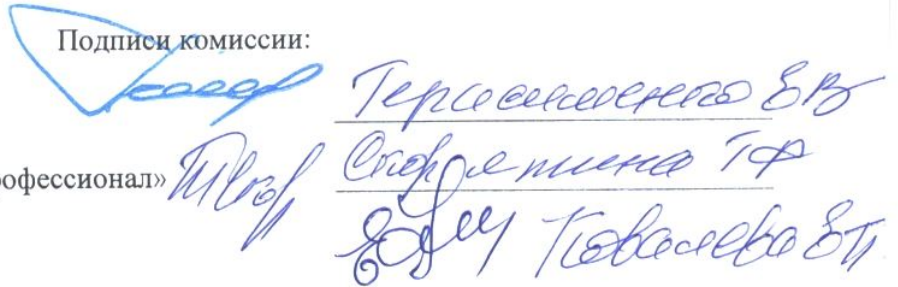 Подписи комиссии:
Герасименко ЕВ
рофессионал» Скорятина ТФ
Ковалева ЕП